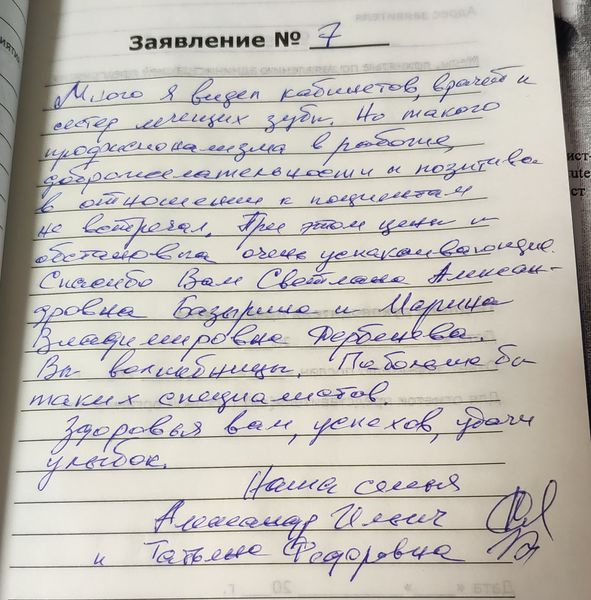 Заявление № 7
Много я видел кабинетов, врачей и
сестер лечащих зубы. Но такого
профисионализма в работе,
доброжелательности и позитива
в отношении к пациентам
не встречал. При этом цены и
обстановка очень успакаивающие.
Спасибо Вам Светлана Алексан-
дровна Базырина и Марина
Владимировна Дербенева.
Вы волшебницы. Побольше бы
таких специалистов.
Здоровья вам, успехов, удачи
улыбок.
Наша семья
Александр Ильич
и Татьяна Федоровна
Дата « » 20 г.